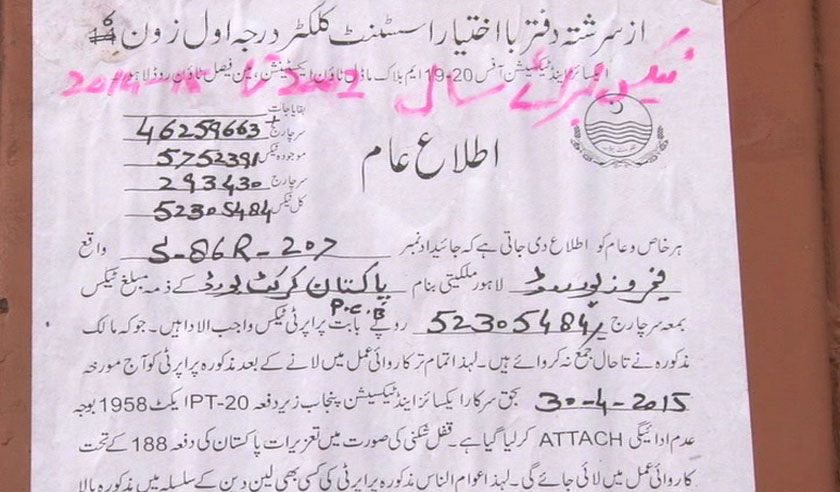 از سرشتہ دفتر با اختیار اسسٹنٹ کلکٹر درجہ اول زون 14
ایکسائز اینڈ ٹیکسیشن آفس 20-19 ایم بلاک ماڈل ٹاؤن ایکسٹینشن، مین فیصل ٹاؤن روڈ لاہور
ٹیکس برائے سال 2002 تا 2014-15
بقایا جات
سرچارج 46259663
موجودہ ٹیکس 5752391
سرچارج 293430
کل ٹیکس 52305484
اطلاع عام
ہر خاص و عام کو اطلاع دی جاتی ہے کہ جائیداد نمبر S-86R-207 واقع
فیروزپور روڈ لاہور ملکیتی بنام پاکستان کرکٹ بورڈ کے ذمہ مبلغ ٹیکس
P.C.B
بمعہ سرچارج 52305484/ روپے بابت پراپرٹی ٹیکس واجب الادا ہیں۔ جو کہ مالک
مذکورہ نے تا حال جمع نہ کروائے ہیں۔ لہذا تمام تر کاروائی عمل میں لانے کے بعد مذکورہ پراپرٹی کو آج مورخہ
30-4-2015 بحق سرکار ایکسائز اینڈ ٹیکسیشن پنجاب زیر دفعہ PT-20 ایکٹ 1958 بوجہ
عدم ادائیگی ATTACH کر لیا گیا ہے۔ قفل شکنی کی صورت میں تعزیرات پاکستان کی دفعہ 188 کے تحت
کاروائی عمل میں لائی جائے گی۔ لہذا عوام الناس مذکورہ پراپرٹی کی کسی بھی لین دین کے سلسلہ میں مذکورہ بالا